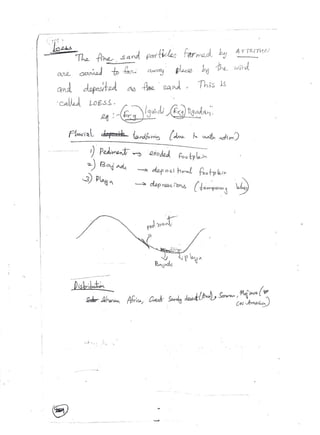 Loess
The fine sand particles formed by ATTRITION
are carried to far away place by the wind
and deposited as fine sand. This is
called LOESS.
eg :- Erg
Fluvial landforms (due to water action)
1) Pediment → eroded footplain
2) Bajada → depositional footplain
3) Playa → depressions (temporary lakes)
pediment
Bajada
Playa
Distribution
Saharan Africa, Great Sandy desert (Aus), Sonoran, Mojave